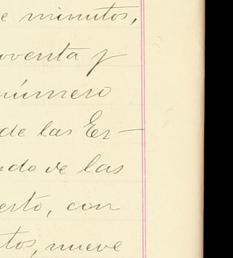 e minutos,
oventa y
número
de las Er-
ndo de las
erto, con
tos, nueve